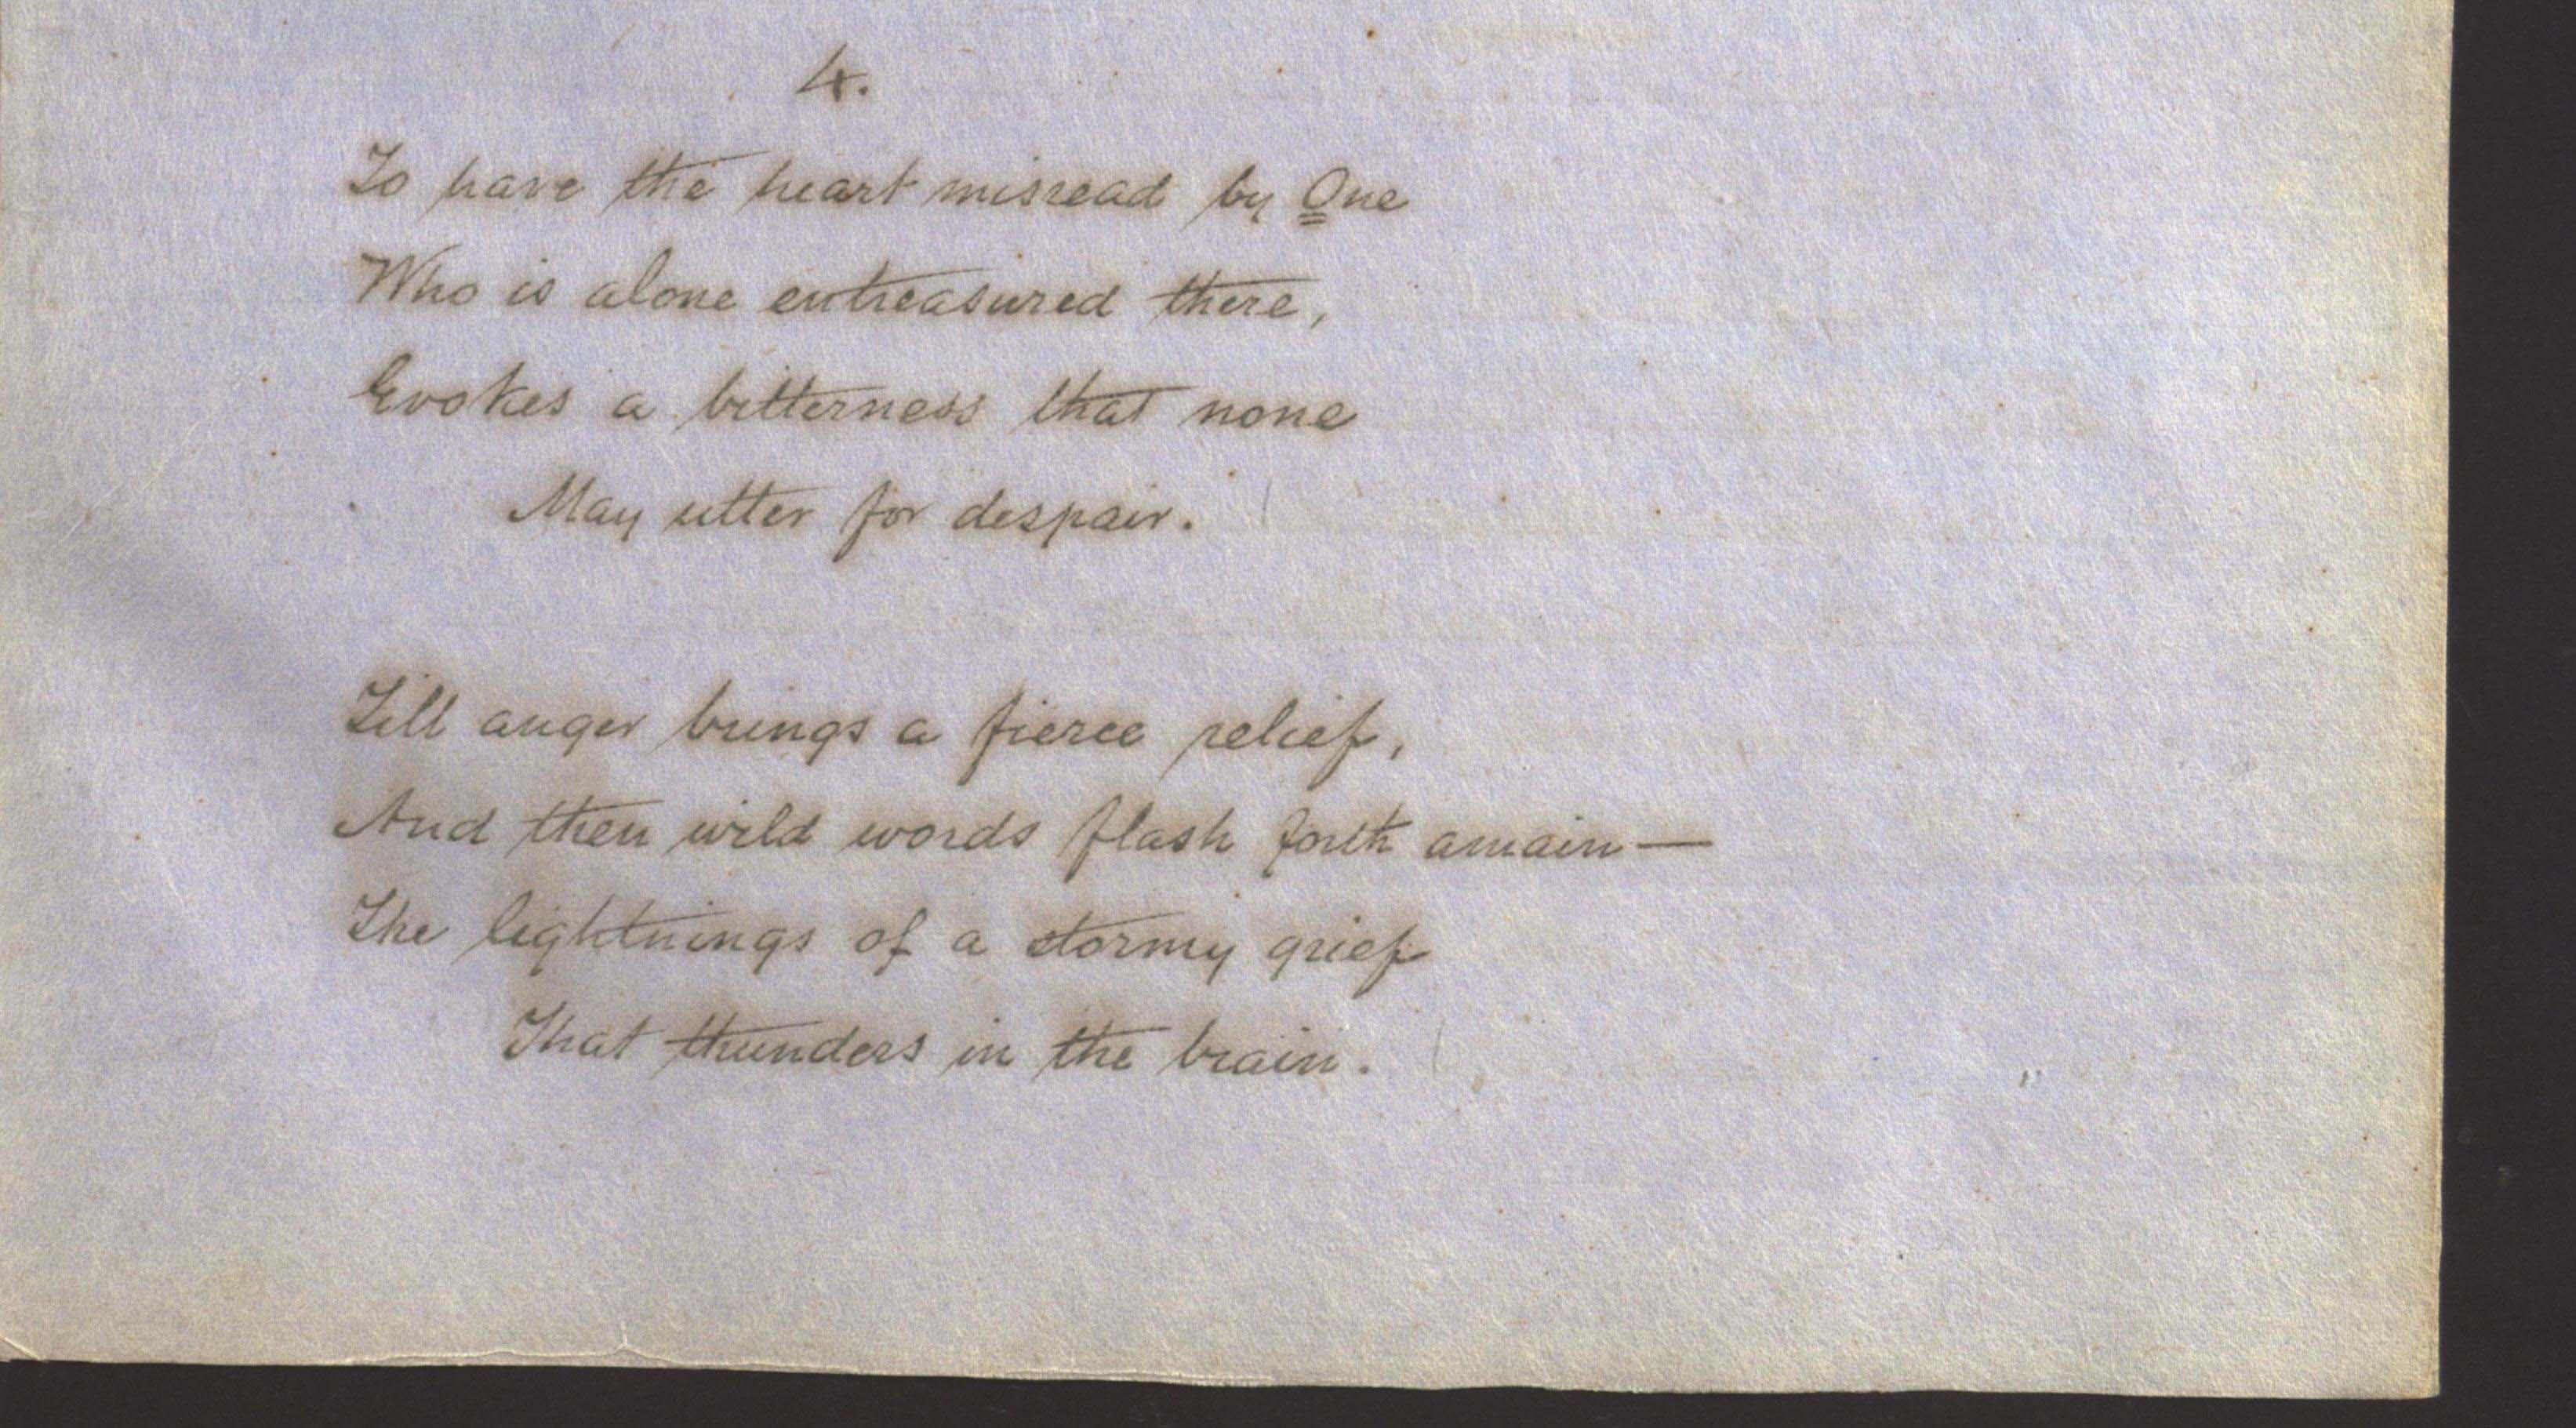 4.
To have the heart misread by One
Who is alone entreasured there,
Evokes a bitterness that none
May utter for despair.
Till anger brings a fierce relief,
And then wild words flash forth amain—
The lightnings of a stormy grief
That thunders in the brain.